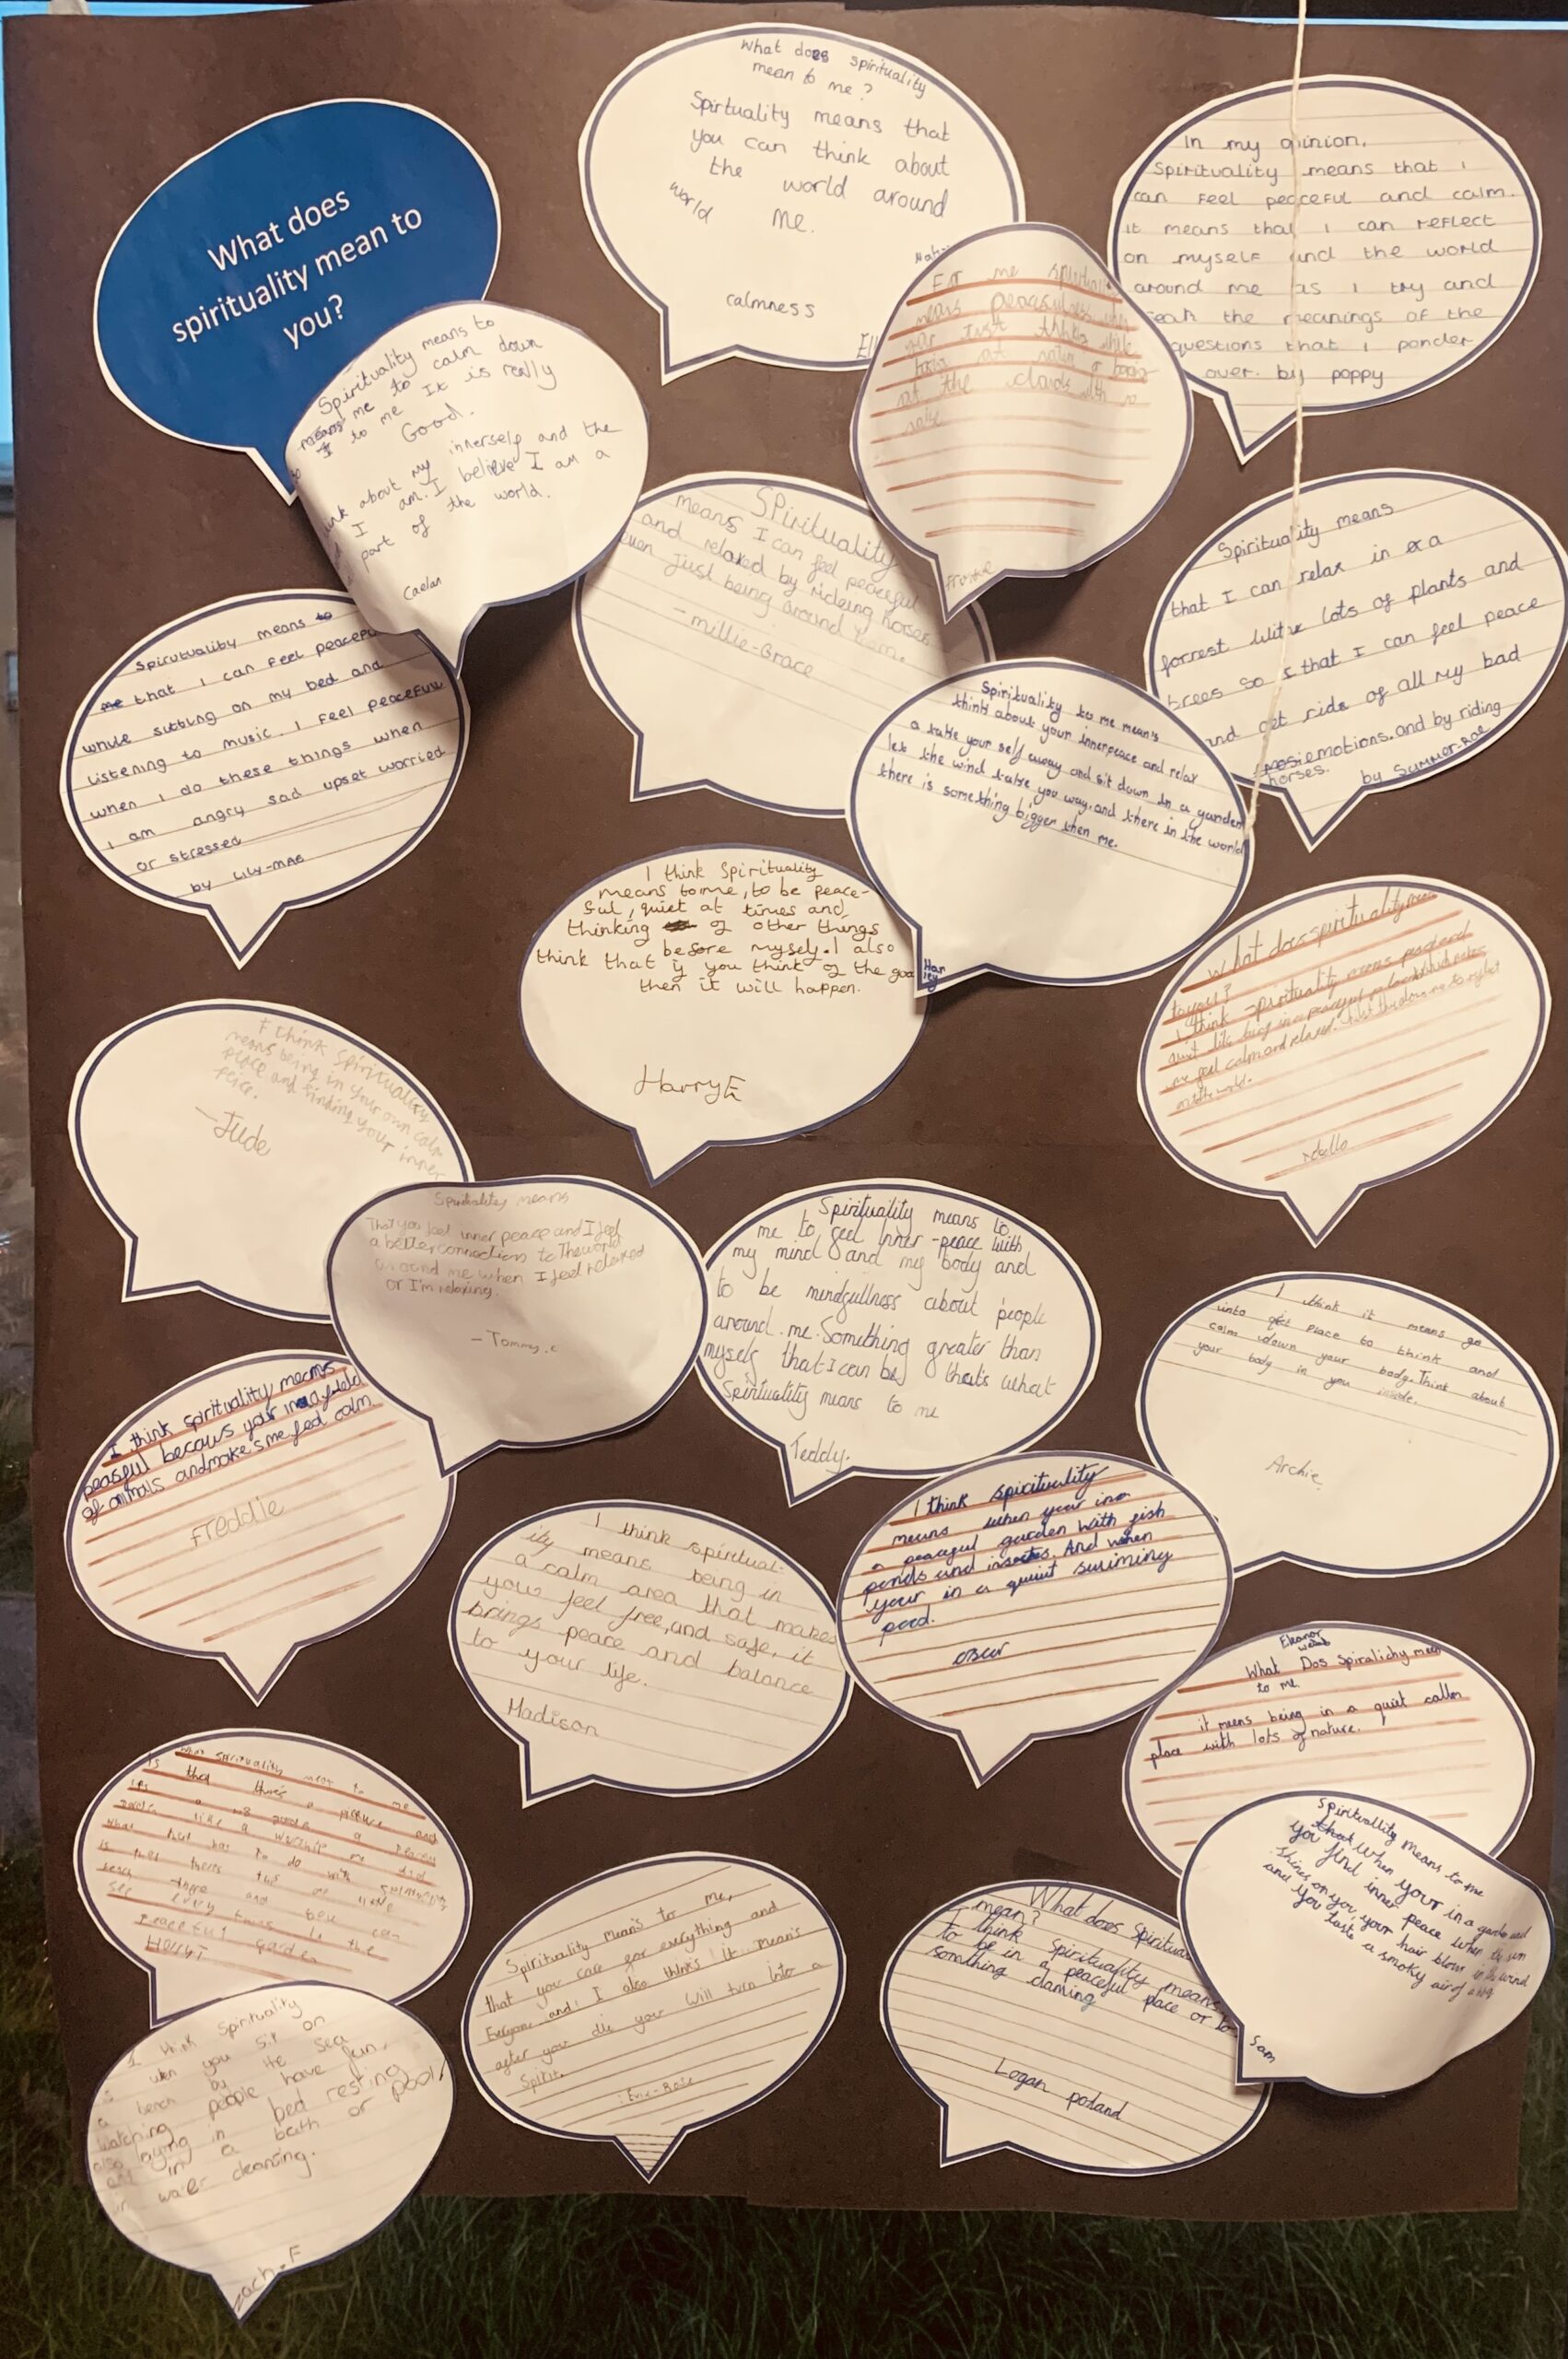 What does
spirituality mean to
you?
What does spirituality
mean to me?
Spirtuality means that
you can think about
the world around
world me.
calmness
In my opinion,
Spirituality means that i
can feel peaceful and calm.
it means that i can reflect
on myself and the world
around me as i try and
seak the meanings of the
questions that i ponder
over. by poppy
Spirituality means to
means me to calm down
I to me It is really
Good.
about my innerself and the
I am. I believe I am a
part of the world.
Caelan
For me
means peacefulness
at the clouds
Spirituality
means I can feel peaceful
and relaxed by rideing horses
even just being around
- millie-Grace
Spirituality means
that I can relax in a
forrest with lots of plants and
trees so that I can feel peace
and get ride of all my bad
emotions. and by riding
horses. by Summer-Rae
Spirutuality means to
me that i can feel
while sitting on my bed and
listening to music. I feel peacefull
when I do these things when
i am angry sad upset worried
or stressed
by Lily-mae
Spirituality to me mean's
think about your innerpeace and relax
a take your self away and sit down in a garden
let the wind take you way. and there in the world
there is something bigger then me.
Harley
I think Spirituality
means to me, to be peace-
ful, quiet at times and
thinking of other things
before myself. I also
think that if you think of the
then it will happen.
Harry E
What does spirituality
to you?
I think spirituality means
me feel calm and relaxed.
on to the world.
I think spirituality
means being in your own calm
peace and finding your inner
peice.
- Jude
Spirituality means
That you feel inner peace and I feel
a better connection to The world
around me when I feel relaxed
or I'm relaxing.
- Tommy.c
Spirituality means to
me to feel Inner-peace with
my mind and my body and
to be mindfullness about people
around me. Something greater than
myself that I can be, thats what
Spirituality means to me
Teddy.
I think it means go
into place to think and
calm down your body. Think about
your body in you inside.
Archie
I think spirituality means
peasful becaus your in a field
of animals and makes me feel calm
Freddie
I think spiritual-
ity means being in
a calm area that makes
you feel free, and safe, it
brings peace and balance
to your life.
Madison
I think spirituality
means when your in a
peaceful garden with fish
ponds and insectes. And when
your in a quiet swiming
pool.
oscar
Eleanor
What Dos Spiralichy mean
to me
it meens being in a quiet callm
place with lots of nature.
spirituality mean to me
is that there's a
garden like a
what that has to do with
is that there
peaceful garden
Spirituallity means to me
that when your in a garden and
you find inner peace when the sun
shines on you, your hair blows in the wind
and you taste a smoky air of a
Sam
Spirituality mean's to me,
that you care for everything and
Everyone and I also thinks it mean's
after you die you will turn into a
Spirit.
What does Spiritua
mean?
I think Spirituality means
to be in a peaceful place or to
somthing claming
Logan poland
I think Spirituality
is when you sit on
a bench by the sea
watching people have fun,
also laying in bed resting
and in a bath or pool,
in water cleansing.
Zach.F